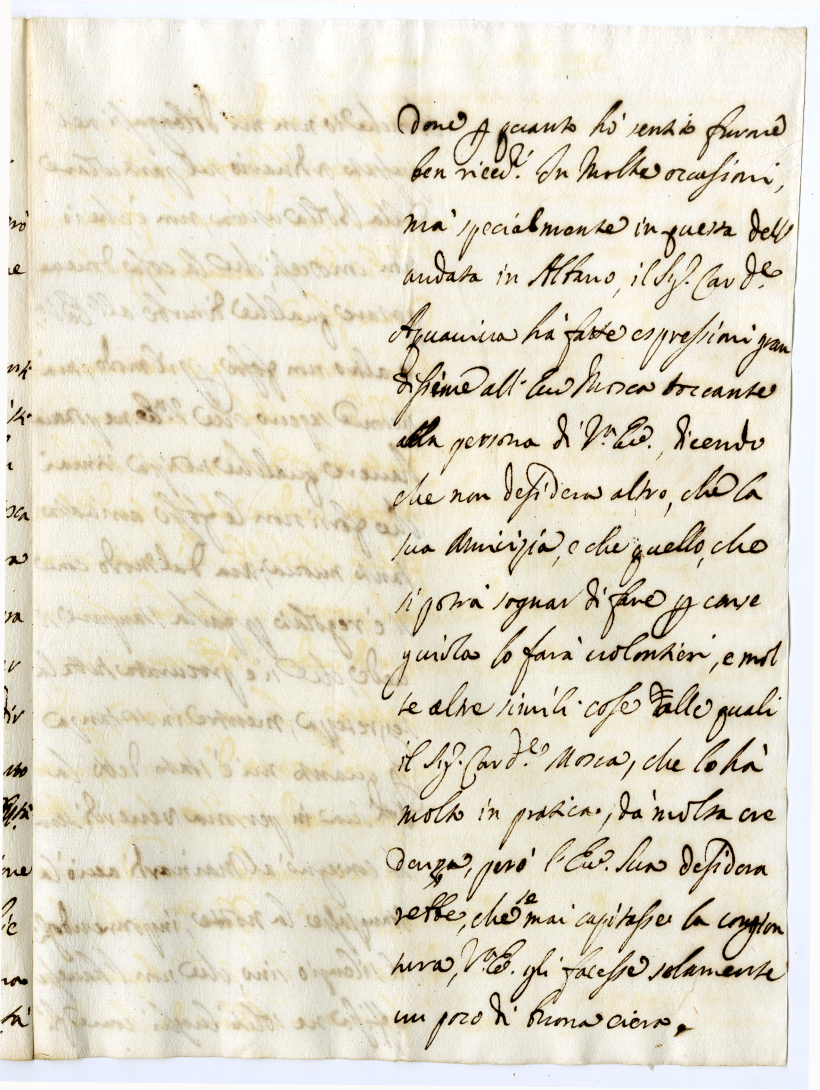 done p quanto hò sentito furono
ben riced.ti In Molte occassioni,
mà specialmente in questa dell'
andata in Albano, il Sig.r Card.le
Aquaviva hà fatte espressioni gran
dissime all'Em Mosca toccante
alla persona di V.ra Em., dicendo
che non desidera altro, che la
sua Amicizia, e che quello, che
si potrà sognar di fare p conse
guirla lo farà volontieri, e mol
te altre simili cose dalle quali
il Sig.r Card.le Mosca, che lo hà
molto in pratica, dà molta cre
denza, però l'Em. Sua desidera
rebbe, che se mai capitasse la congion
tura, V.ra E. gli facesse solamente
un poco di buona ciera.